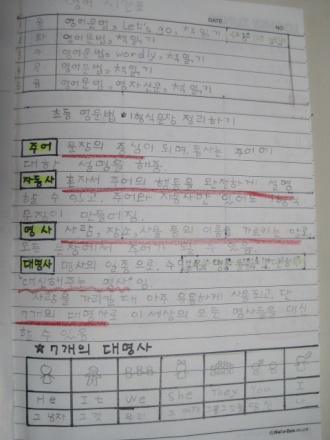 영어 시간표
DATE NO
월 영어문법, Let's go, 책읽기
화 영어문법, 책읽기
수 영어문법, wordly, 책읽기
목 영어문법, 책읽기
금 영어문법, 영자신문, 책읽기
초등 영문법 1형식문장 정리하기
주어 문장의 중심이 되며, 동사는 주어에
대한 설명을 해줌.
자동사 혼자서 주어의 행동을 완전하게 설명
할 수 있고, 주어와 자동사만 있어도
문장이 만들어짐.
명사 사람, 장소, 사물 등의 이름을 가르키는 말로,
모든 문장에서 주어가 될 수 있음.
대명사 명사의 일종으로,
대신해주는 명사임.
사람을 가리킬 때 아주 유용하게 사용되고, 단
7개의 대명사로 이 세상의 모든 명사들을 대신
할 수 있음
★7개의 대명사
He It We She They You I
그 남자 그 것 우리 그 여자 그들 당신 나